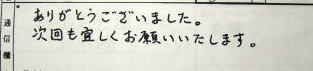 通信欄
ありがとうございました。
次回も宜しくお願いいたします。